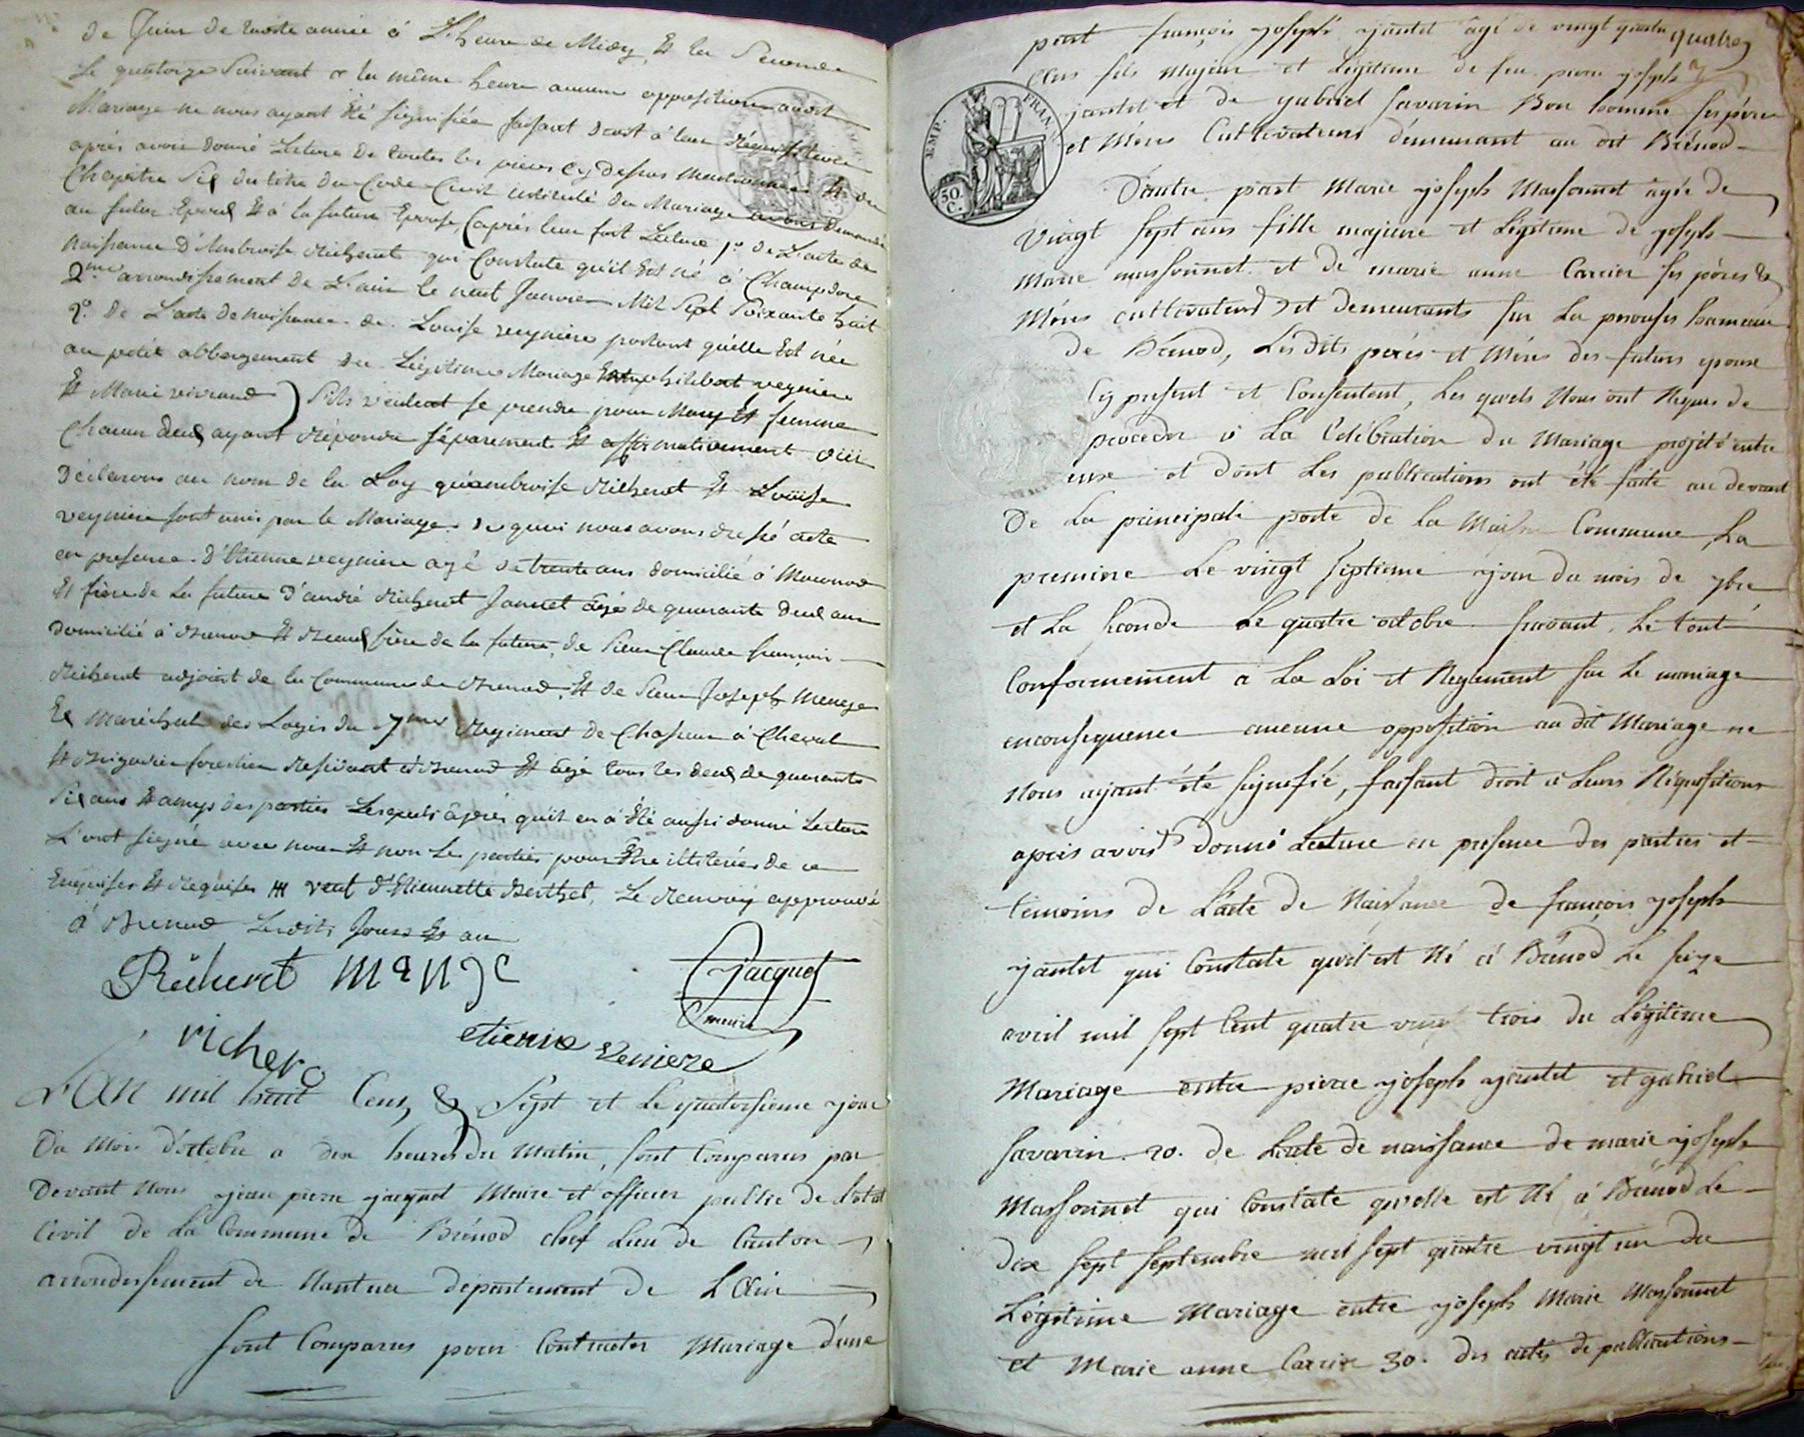 de Juin de cette année à L'heure de Midy, Et la Seconde
Le quatorze Suivant a la même heure aucune opposition audit
Mariage ne nous ayant Eté signifiée faisant Droit à leur Réquisition
après avoir donné Lecture De toutes les pièces cy dessus Mentionnées Et du
Chapitre Six du titre du Code Civil intitulé du Mariage avons demandé
au futur Epoux Et à la future Epouse, (après leur fait Lecture 1° de L'acte de
naissance D'Ambroise Richerot qui Constate qu'il Est né à Champdore
2me arrondissement de L'ain le neuf Janvier Mil Sept Soixante huit
2° De L'acte de naissance de Louise veyniere portant qu'elle Est née
au petit abbergement du Légitime Mariage Entre philibert veyniere
Et Marie vivrand) S'ils veulent se prendre pour Mary Et femme
Chacun deux ayant Répondu séparement Et affirmativement oui
Déclarons au nom de la Loy qu'ambroise Richerot Et Louise
veyniere sont unis par le Mariage. De quoi nous avons dressé acte
en presence D'Etienne veyniere agé de trente ans domicilié à
Et frère de La future D'andré Richerot Jannet âgé de quarante Deux ans
domicilié à Brenod Et Beau frère de la future, de Sieur Claude françois
Richerot adjoint de la Commune de Brenod, Et de Sieur Joseph Menge
Ex Maréchal des Logis du 7me Regiment de Chasseur à Cheval
Et Brigadier forestier Residant à Brenod Et âgé tous les deux de quarante
Six ans Et amys des parties Lesquels après qu'il en a Eté aussi donné Lecture
L'ont signé avec nous Et non Les parties pour Etre illiterées de ce
Enquises Et Requises ### veuf d'Etiennette Berthet, Le Renvoy approuvé
à Brenod Lesdits Jours Et an
Richerot Menge
Jacquet
maire
richero
etienne Veniere
L'An mil huit Cens & Sept et Le quatorsieme jour
Du Mois d'octobre a dix heures du Matin, sont Comparus par
Devant Nous jean pierre jacquet Maire et officier public de L'etat
Civil de La Commune de Brénod chef Lieu de Canton
arrondissement de Nantua département de L'Ain
sont Comparus pour Contracter Mariage d'une
part françois joseph jantet âgé de vingt quatre quatre
ans fils majeur et Légitime de feu pierre joseph
jantet et de gabriel savarin Bon homme ses père
et Mère Cultivateurs démeurant au dit Brénod
D'autre part Marie joseph Massonnet âgée de
Vingt sept ans fille majeure et Légitime de joseph
Marie massonnet et de marie anne Carrier ses pères &
Mères cultivateurs et demeurants sur La hameau
de Brénod, Les dits pères et Mères des futurs epoux
Cy présent et Consentent, Les quels Nous ont Requis de
proceder à La Célébration du Mariage projeté entre
eux et dont Les publications ont été faite au devant
De La principale porte de la Maison Commune, La
premiere Le vingt septieme jour du mois de 7bre
et La seconde Le quatre octobre suivant, Le tout
Conformement a La Loi et Reglement sur Le mariage
enconsequence aucunne opposition au dit Mariage ne
Nous ayant été signifié, faisant droit à Leurs Réquisitions
après avoir donné Lecture en presence des parties et
témoins de L'acte de Naissance de françois joseph
jantet qui Constate qu'il est Né à Brénod Le seize
avril mil sept Cent quatre vingt trois du Légitime
Mariage entre pierre joseph jantet et gabriel
savarin. 20. de L'acte de naissance de marie joseph
Massonnet qui Constate qu'elle est Né à Brénod Le
dix sept septembre mil sept quatre vingt un du
Légitime Mariage entre joseph Marie Massonnet
et Marie anne Carrier 30. des actes de publications
EMP. FRAN.
50 C.